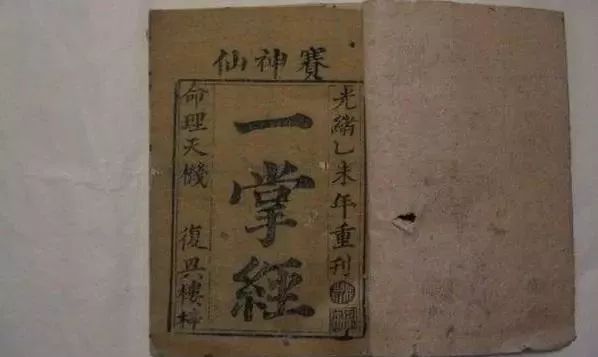 賽神仙
光緒乙未年重刊
一掌經
命理天機 復興樓梓